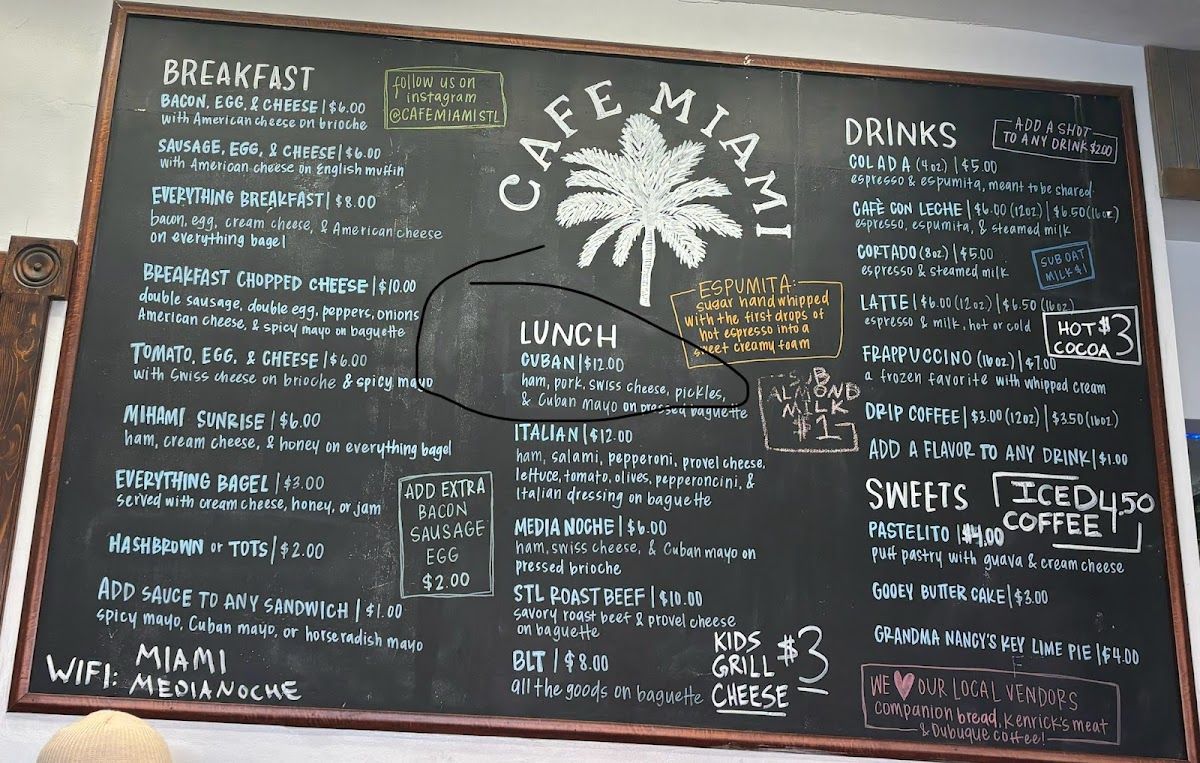 BREAKFAST
BACON, EGG, & CHEESE | $6.00
with American cheese on brioche
SAUSAGE, EGG, & CHEESE | $6.00
with American cheese on English muffin
EVERYTHING BREAKFAST | $8.00
bacon, egg, cream cheese, & American cheese
on everything bagel
BREAKFAST CHOPPED CHEESE | $10.00
double sausage, double egg, peppers, onions
American cheese, & spicy mayo on baguette
TOMATO, EGG, & CHEESE | $6.00
with Swiss cheese on brioche & spicy mayo
MIHAMI SUNRISE | $6.00
ham, cream cheese, & honey on everything bagel
EVERYTHING BAGEL | $3.00
served with cream cheese, honey, or jam
HASHBROWN or TOTS | $2.00
ADD SAUCE TO ANY SANDWICH | $1.00
spicy mayo, Cuban mayo, or horseradish mayo
WIFI: MIAMI
MEDIANOCHE
follow us on
instagram
@CAFEMIAMISTL
ADD EXTRA
BACON
SAUSAGE
EGG
$2.00
CAFE MIAMI
ESPUMITA:
sugar hand whipped
with the first drops of
hot espresso into a
sweet creamy foam
LUNCH
CUBAN | $12.00
ham, pork, swiss cheese, pickles,
& Cuban mayo on pressed baguette
ITALIAN | $12.00
ham, salami, pepperoni, provel cheese,
lettuce, tomato, olives, pepperoncini, &
Italian dressing on baguette
MEDIA NOCHE | $6.00
ham, swiss cheese, & Cuban mayo on
pressed brioche
STL ROAST BEEF | $10.00
savory roast beef & provel cheese
on baguette
BLT | $8.00
all the goods on baguette
KIDS
GRILL
CHEESE
$3
SUB
ALMOND
MILK
$1
DRINKS
ADD A SHOT
TO ANY DRINK $2.00
COLADA (4oz) | $5.00
espresso & espumita, meant to be shared
CAFÈ CON LECHE | $6.00 (12oz) | $6.50 (16oz)
espresso, espumita, & steamed milk
CORTADO (8oz) | $5.00
espresso & steamed milk
SUB OAT
MILK $1
LATTE | $6.00 (12oz) | $6.50 (16oz)
espresso & milk, hot or cold
HOT $3
COCOA
FRAPPUCCINO (16oz) | $7.00
a frozen favorite with whipped cream
DRIP COFFEE | $3.00 (12oz) | $3.50 (16oz)
ADD A FLAVOR TO ANY DRINK | $1.00
SWEETS
ICED 4.50
COFFEE
PASTELITO | $4.00
puff pastry with guava & cream cheese
GOOEY BUTTER CAKE | $3.00
GRANDMA NANCY'S KEY LIME PIE | $4.00
WE ♥ OUR LOCAL VENDORS
companion bread, Kenrick's meat
& Dubuque coffee!